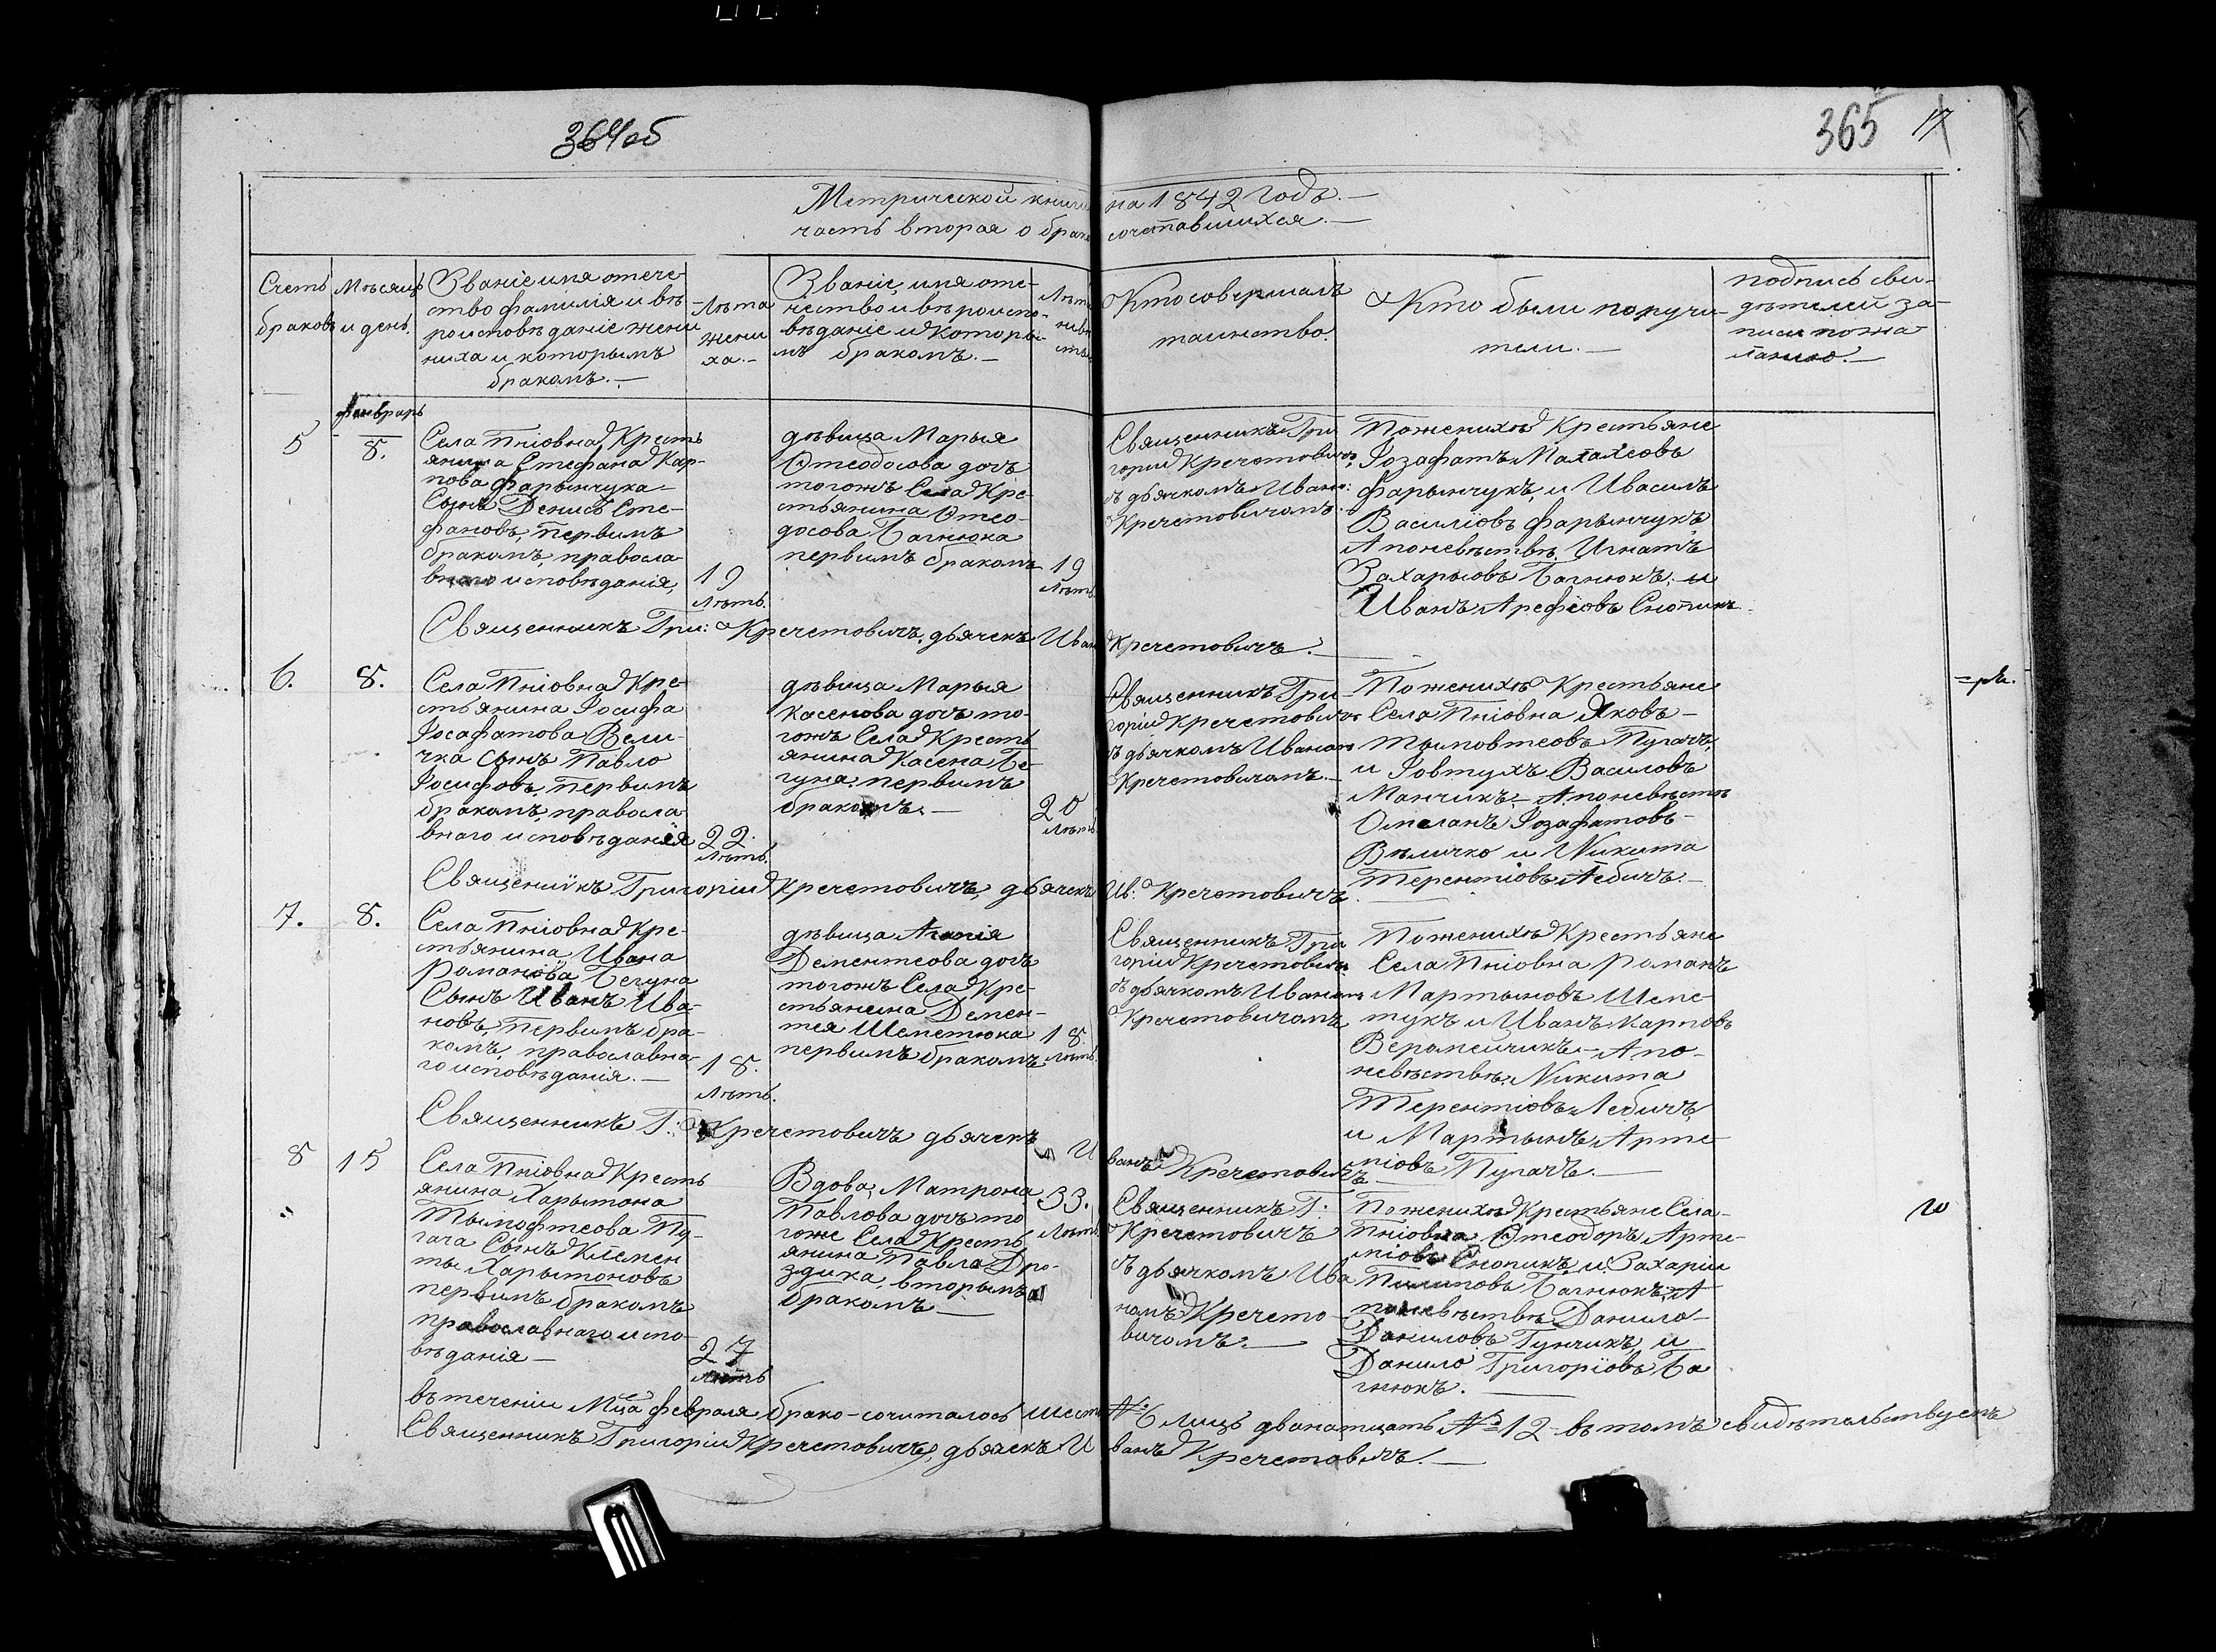 364об
365
17
Метрической книги на 1842 Годъ.—
часть вторая о бракосочетавшихся.—
Счетъ
браковъ
Мѣсяцъ
и день.
Званіе имя отече-
ство фамилія и вѣ
роисповѣданіе жени
ниха и которымъ
бракомъ.—
Лѣта
жени
ха.—
Званіе, имя оте-
чество и вѣроиспо-
вѣданіе и Которы-
мъ бракомъ.—
Кто совершалъ
таинство.
Кто были поручи-
тели.—
подпись сви-
дѣтелей за-
писи по же-
ланію.—
февраль
5
8.
Села Пніовна Кресть
янина Стефана Кар-
пова Фарынчука
Сынъ Денисъ Сте-
фановъ, первымъ
бракомъ, правосла
внаго исповѣданія,
19
Лѣтъ.
дѣвица Марыя
Ѳтеодосова дочъ
тогожъ Села Кре-
стьянина Ѳтео-
досова Багнюка
первымъ бракомъ
19
Лѣтъ.
Священникъ Гри
горій Кречетовичъ,
съ дьячкомъ Иваном:
Кречетовичомъ.
По женихѣ Крестьяне
Іозафатъ Малахіовъ
Фарынчукъ, и Ивасилъ
Василіовъ Фарынчукъ
А поневѣстѣ Игнатъ
Захарыовъ Багнюкъ, и
Иванъ Арефіовъ Снопикъ
Священникъ Гри: Кречетовичъ, дьячекъ Иван Кречетовичъ.—
6.
8.
Села Пніовна Кре-
стьянина Іосифа
Іосафатова Вели-
чка Сынъ Павло
Іосифовъ, первымъ
бракомъ, правосла
внаго исповѣданія
22.
Лѣтъ.
дѣвица Марыя
Касенова дочъ то-
гожъ Села Кресть
янина Касена Бе-
гуна, первымъ
бракомъ.—
20
Лѣтъ.
Священникъ Гри-
горій Кречетовичъ
съ дьячкомъ Иваномъ
Кречетовичомъ.—
По женихѣ Крестьяне
Села Пніовна Яковъ—
Тымовтеовъ Пугачъ,
и Іовтухъ Василовъ
Манчикъ.— А поневѣстѣ
Омеланъ Іозафатовъ—
Вѣличко и Никита
Терентіовъ Лебичъ.—
Священникъ Григорій Кречетовичъ, дьячекъ Ив: Кречетовичъ
7.
8.
Села Пніовна Кре-
стьянина Ивана
Романова Бегуна
Сынъ Иванъ Ива-
новъ, первымъ бра-
комъ, православна-
го исповѣданія.—
18.
Лѣтъ.
дѣвица Агапія
Дементеова дочъ
тогожъ Села Кре-
стьянина Демен-
тея Шепетюка
первымъ бракомъ
18.
Лѣтъ.
Священникъ Гри
горій Кречетовичъ
съ дьячкомъ Иваномъ
Кречетовичомъ
По женихѣ Крестьяне
Села Пніовна Романъ
Мартыновъ Шепе-
тукъ и Иванъ Карповъ
Верамейчикъ.— А по-
невѣстѣ, Никита
Терентіовъ Лебичъ,
и Мартынъ Арте-
міовъ Пугачъ.—
Священникъ Г: Кречетовичъ дьячекъ Иванъ Кречетовичъ.
8
15
Села Пніовна Кресть
янина Харытона
Тымофтеова Пу-
гача Сынъ Клемен
ты Харытоновъ
первымъ бракомъ
православнаго испо-
вѣданія—
27
Лѣтъ
Вдова, Матрона
Павлова дочъ то
гоже Села Кресть
янина Павла Дро-
здика, вторымъ
бракомъ—
33.
Лѣтъ
Священникъ Г:
Кречетовичъ
съ дьячкомъ Ива
номъ Кречето-
вичомъ.—
По женихѣ Крестьяне Села
Пніовна Ѳтеодоръ Арте-
міовъ Снопикъ, и Захарій
Пилиповъ Багнюкъ, А
поневѣстѣ Данило
Даниловъ Гунчикъ, и
Данило Григоріовъ Ба
гнюкъ.—
въ теченіи Мца февраля брако-сочиталось шесть № 6 лицъ дванатцать № 12 въ томъ свидѣтельствуемъ
Священникъ Григорій Кречетовичъ, дьячекъ Иванъ Кречетовичъ.—